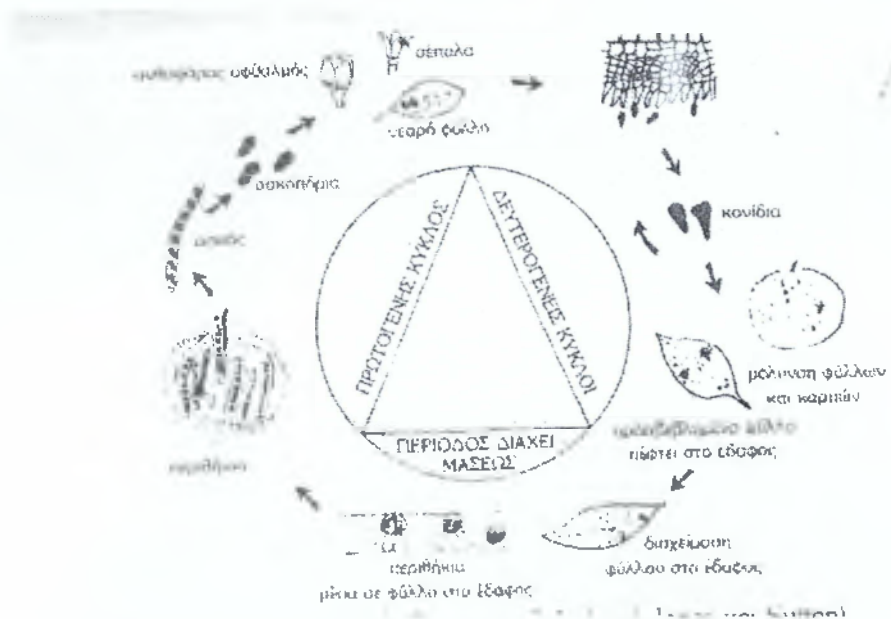 οφθαλμός
σέπαλα
νεαρό φύλλο
ασκοσπόρια
ασκός
κονίδια
ΠΡΩΤΟΓΕΝΗΣ ΚΥΚΛΟΣ
ΔΕΥΤΕΡΟΓΕΝΕΙΣ ΚΥΚΛΟΙ
ΠΕΡΙΟΔΟΣ ΔΙΑΧΕΙ
ΜΑΣΕΩΣ
μόλυνση φύλλων
και καρπών
προσβεβλημένο φύλλο
πέφτει στο έδαφος
περιθήκιο
διαχείμαση
φύλλου στο έδαφος
περιθήκια
μέσα σε φύλλο στο έδαφος